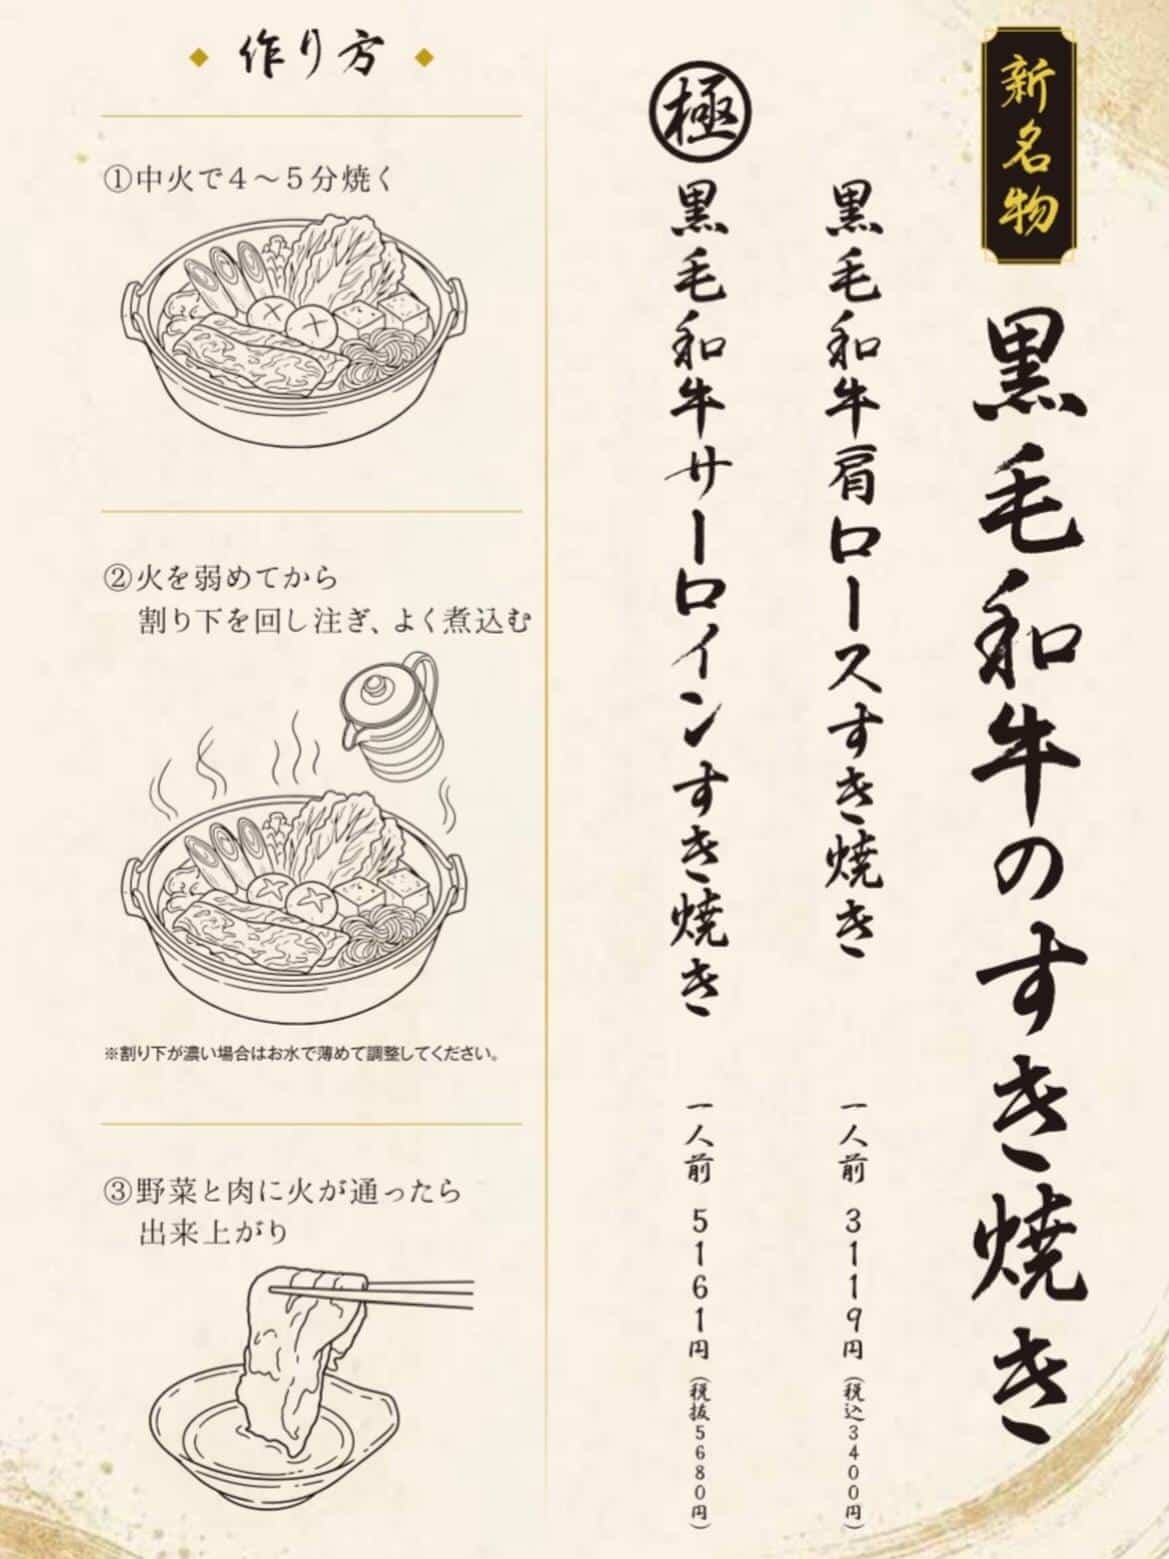 新名物
黒毛和牛のすき焼き
黒毛和牛肩ロースすき焼き 一人前 3119円(税込3400円)
極 黒毛和牛サーロインすき焼き 一人前 5161円(税抜5680円)
作り方
①中火で4〜5分焼く
②火を弱めてから
割り下を回し注ぎ、よく煮込む
※割り下が濃い場合はお水で薄めて調整してください。
③野菜と肉に火が通ったら
出来上がり